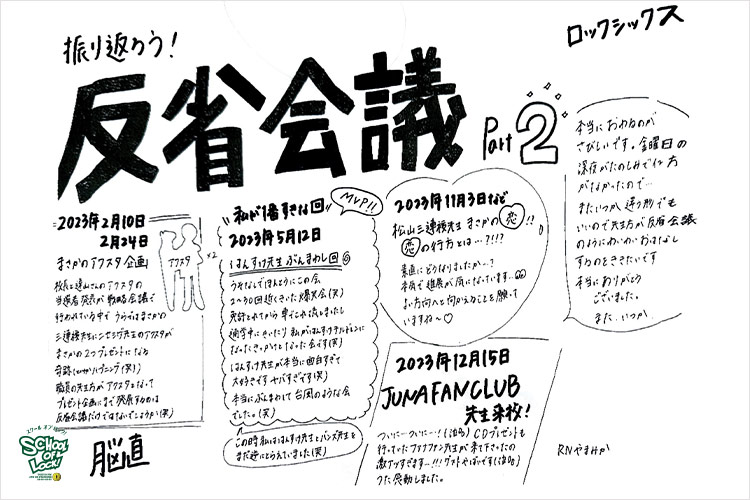 振り返ろう！
ロックシックス
反省会議 Part 2
2023年2月10日
2月24日
まさかのアクスタ企画
アクスタ
×2
校長と遠山さんのアクスタの
当選者発表が戦略会議で
行われている中で うらでは まさかの
三連複先生にニセシヴ先生のアクスタが
まさかの2つプレゼントになる
奇跡
職員の先生方が アクスタとなって
プレゼント企画にまで発展するのは
反省会議だけではないでしょうか(笑)
"私が1番すきな回"
MVP!!
2023年5月12日
はんすけ先生 ぶんまわし回
うそなしでほんとうにこの会
2〜30回近くきいた爆笑会(笑)
免許とれてから 車でこれ流しましたし
通学中にきいたり 私がはんすけチルドレンに
なったきっかけとなった会です(笑)
はんすけ先生が本当に面白すぎて
大好きです ヤバすぎです(笑)
本当にぶんまわして 台風のような会
でした。(笑)
この時私は はんすけ先生とバンズ先生を
まだ逆にとらえていました(笑)
2023年11月3日など
松山三連複先生 まさかの恋!!
恋の行方とは…?!!?
素直にどうなりましたか…?
本気で進展が気になっています…
よい方向へと向かえることを願って
いますね〜♡
2023年12月15日
JUNAFANCLUB
先生来校！
ついにーついにー…!(泣) CDプレゼントも
行っていたファンファン先生が来て下さったの
激アツすぎます…!!! ゲストやばいです(泣)
うた感動しました。
本当におわるのが
さびしいです。金曜日の
深夜がたのしみで仕方
がなかったので…
またいつか、送り別でも
いいので先生方が反省会議
のようにわいわいおはなし
するのをききたいです
本当にありがとう
ございました。
また、いつか。
RN やまみか
脳直
スクール オブ ロック!
SCHOOL
OF
LOCK!